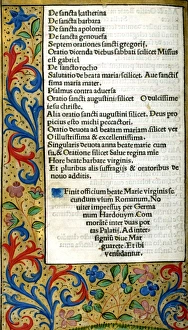 De sancta katherina
De sancta barbara
De sancta apolonia
De sancta genouefa
Septem orationes sancti gregorij.
Oratio dicenda diebus sabbati scilicet Missus
est gabriel
De sancto rocho
Salutatio de beata maria scilicet. Aue sanctissima
maria mater.
Psalmus contra aduersa
Oratio sancti augustini scilicet O dulcissime
iesu christe.
Alia oratio sancti augustini scilicet. Deus propicius
esto michi peccatori.
Oratio deuota ad beatam mariam scilicet.
O illustrissima & excellentissima.
Singularis deuota anna beate marie cum
& Oratione scilicet Salue regina mie
Hore beate barbare virginis.
Et pluribus aliis suffragiis & orationibus de
nouo additis.
Finit officium beate Marie virginis secundum
vsum Romanum. No
uiter impressus per Germa
num Hardouyn. Com
morāte inter duas por
tas Palatii. Ad inter
signiū diue Mar
guarete. Et ibi
venūdantur.